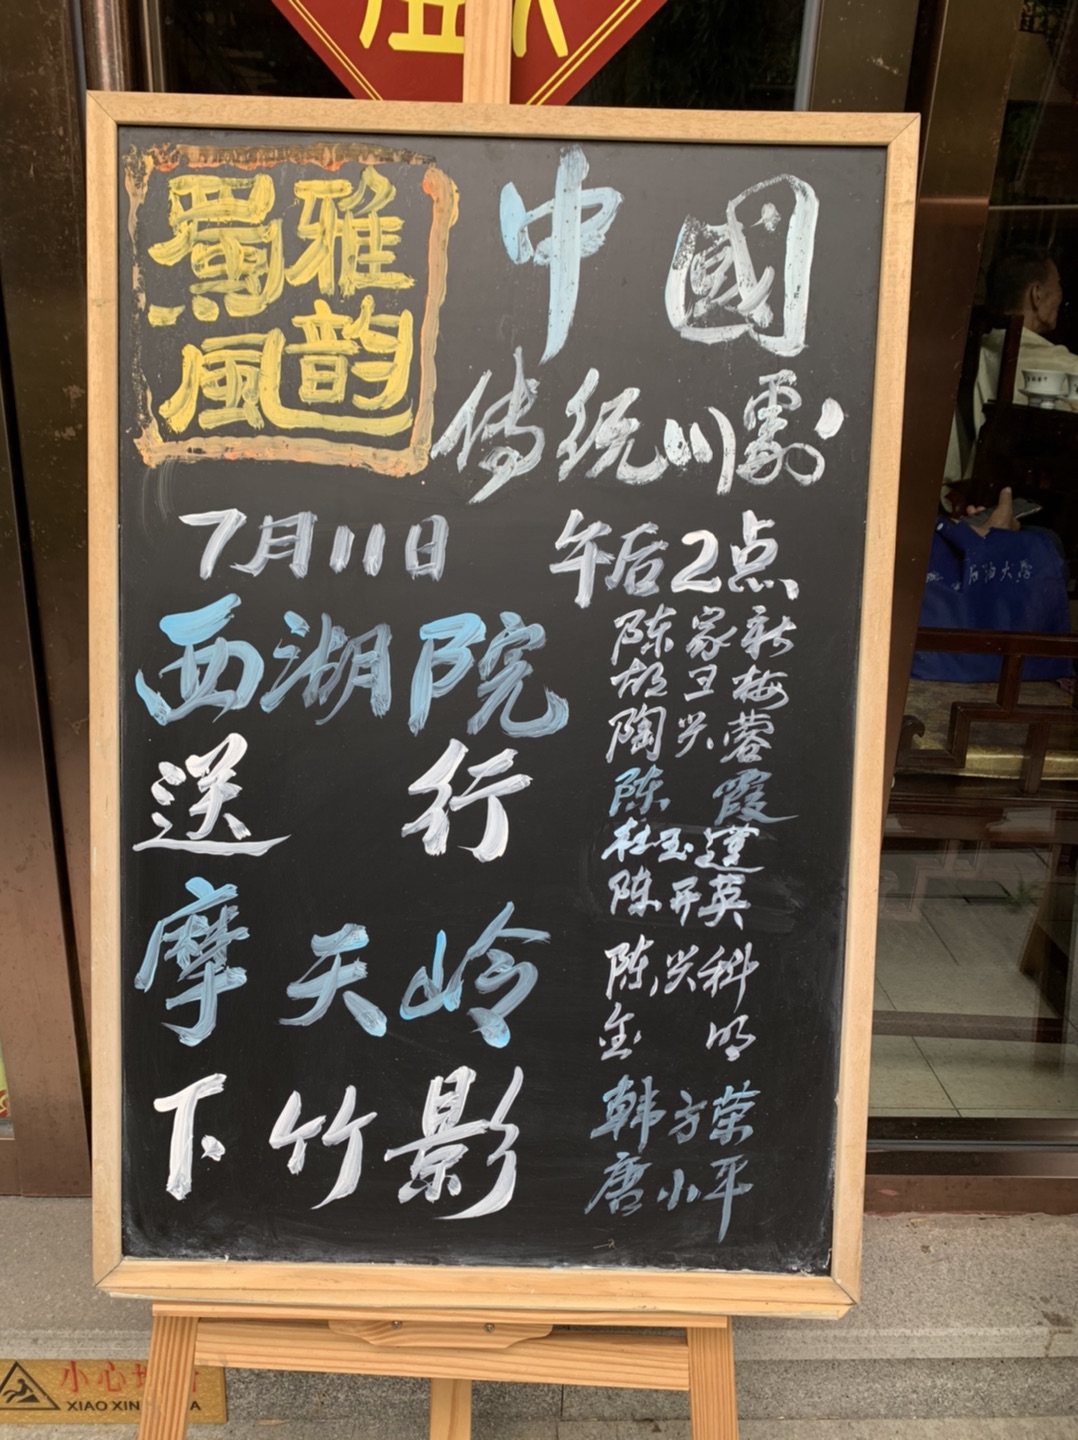 蜀雅
風韵
中國
传统川剧
7月11日 午后2点
西湖院
陈家新
胡卫梅
陶兴蓉
送行
陈霞
杜玉莲
陈开英
摩天岭
陈兴科
金明
下竹影
韩方荣
唐小平
小心
XIAO XIN